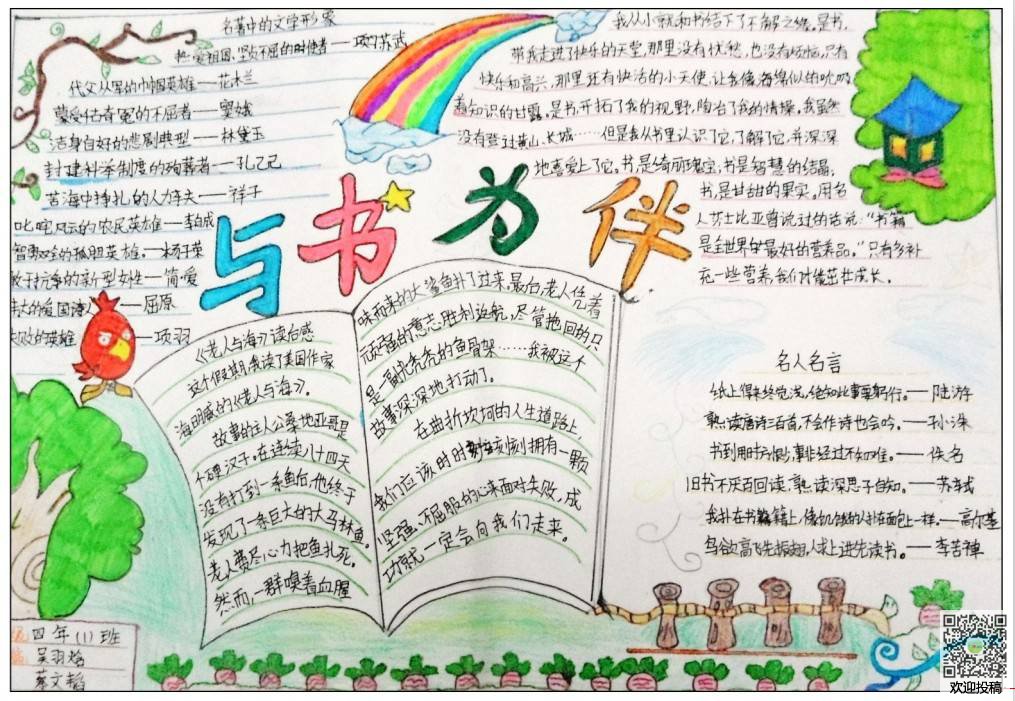 名著中的文学形象
热爱祖国、坚贞不屈的时使者—苏武
代父从军的巾帼英雄—花木兰
蒙受估奇冤的不屈者—窦娥
洁身自好的悲剧典型—林黛玉
封建科举制度的殉葬者—孔乙己
苦海中挣扎的人力车夫—祥子
叱咤风云的农民英雄—李自成
智勇双全的孤胆英雄—杨子荣
敢于抗争的新型女性—简·爱
伟大的爱国诗人—屈原
失败的英雄—项羽
我从小就和书结下了不解之缘,是书,
带我走进了快乐的天堂,那里没有忧愁,也没有烦恼,只有
快乐和高兴,那里还有快活的小天使,让我像海绵似的吮吸
着知识的甘露,是书开拓了我的视野,陶冶了我的情操,我虽然
没有登过黄山、长城……但是我从书里认识了它,了解了它,并深深
地喜爱上了它。书是绮丽瑰宝,书是智慧的结晶,
书是甘甜的果实。用名
人莎士比亚曾说过的话说:“书籍
是全世界最好的营养品。”只有多补
充一些营养,我们才能茁壮成长。
与书为伴
《老人与海》读后感
这个假期,我读了美国作家
海明威的《老人与海》。
故事的主人公桑地亚哥是
个硬汉子,在连续八十四天
没有打到一条鱼后,他终于
发现了一条巨大的大马林鱼。
老人费尽心力把鱼扎死。
然而,一群嗅着血腥
味而来的大鲨鱼扑了过来,最后,老人凭着
顽强的意志胜利返航,尽管拖回的只
是一副光秃秃的鱼骨架……我被这个
故事深深地打动了。
在曲折坎坷的人生道路上,
我们应该时时刻刻拥有一颗
坚强、不屈服的心来面对失败,成
功就一定会向我们走来。
名人名言
纸上得来终觉浅,绝知此事要躬行。—陆游
熟读唐诗三百首,不会作诗也会吟。—孙洙
书到用时方恨少,事非经过不知难。—佚名
旧书不厌百回读,熟读深思子自知。—苏轼
我扑在书籍上,像饥饿的人扑在面包上一样。—高尔基
鸟欲高飞先振翅,人求上进先读书。—李苦禅
四年(1)班
吴羽
蔡文韬
欢迎投稿